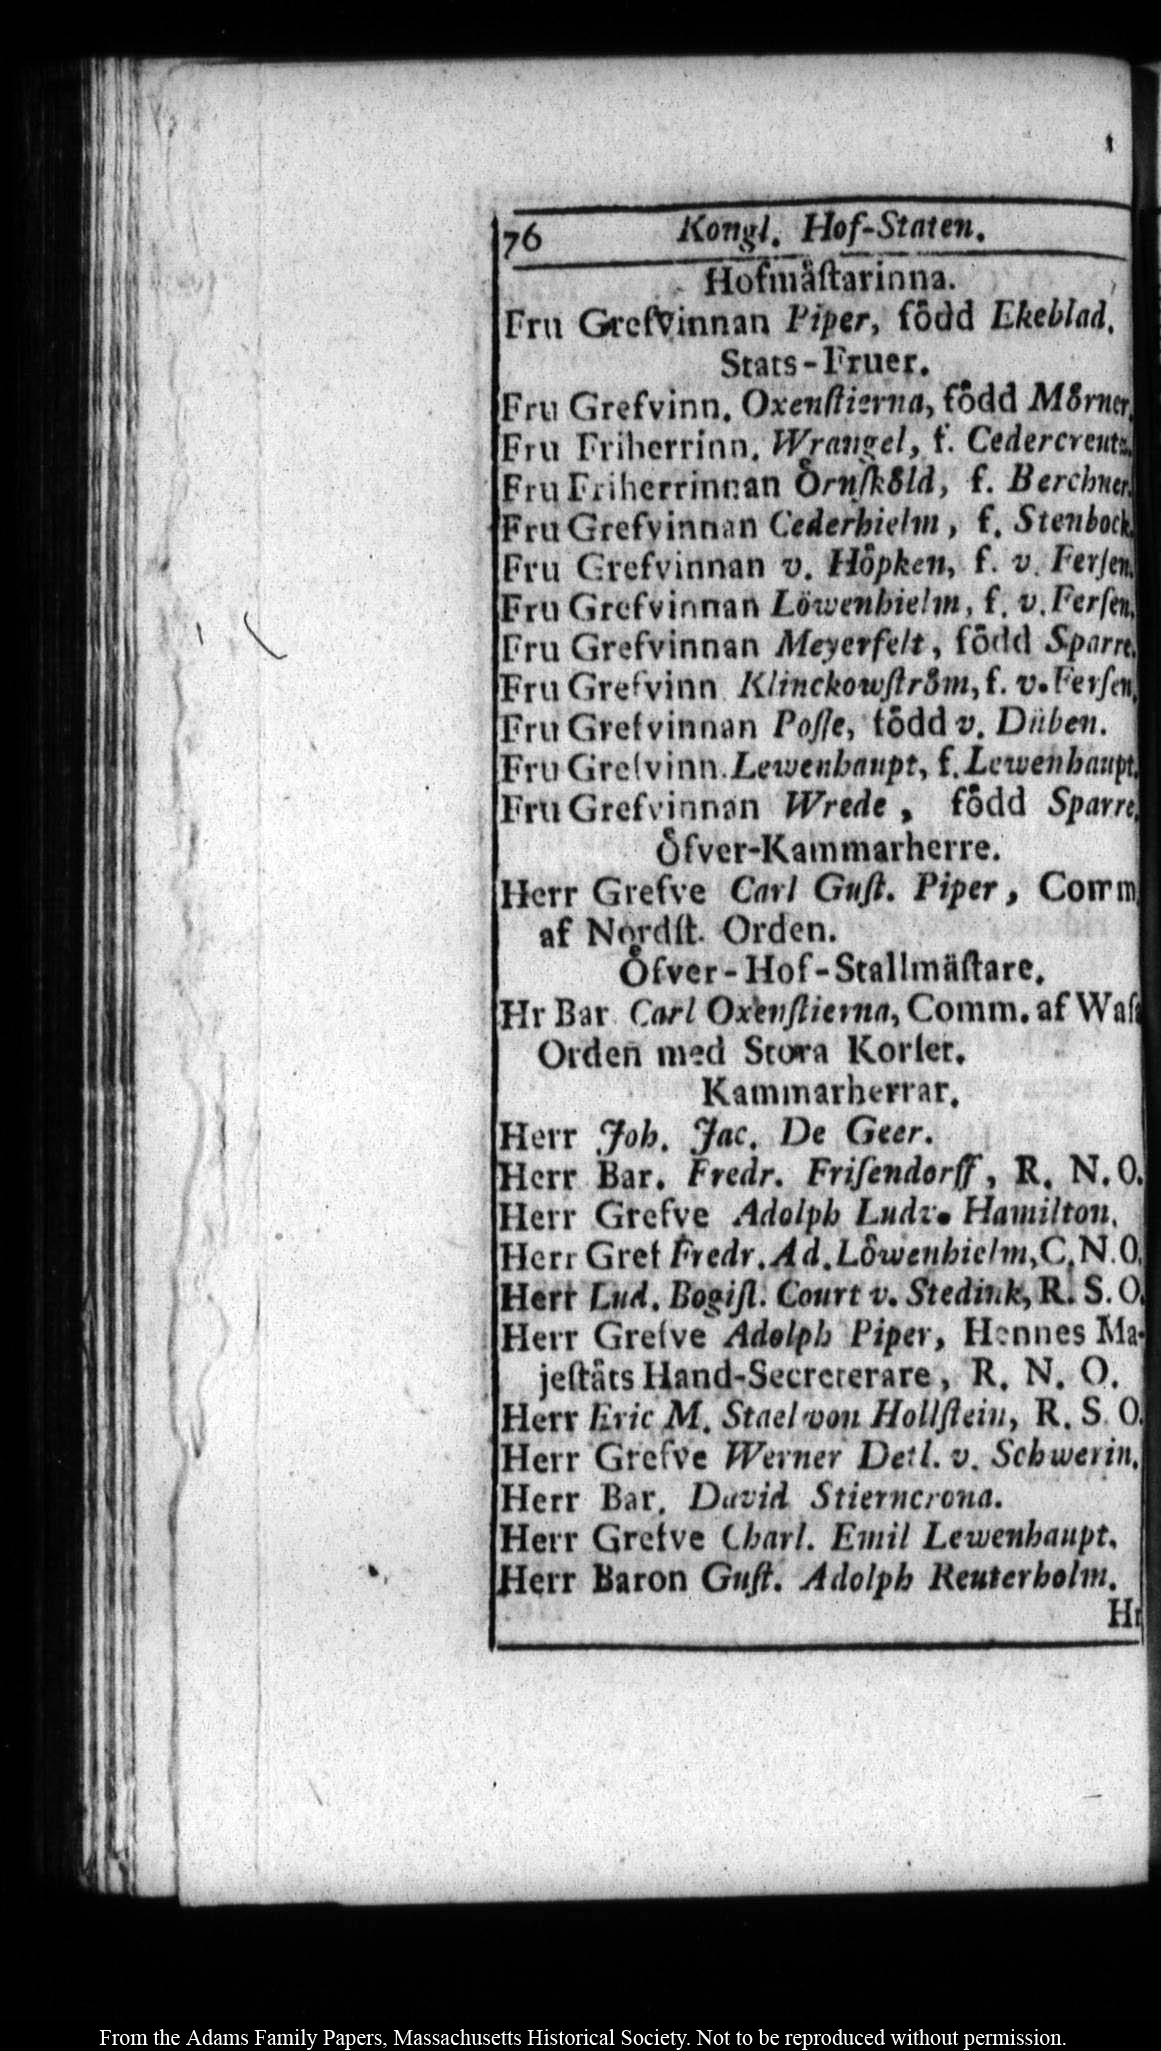 76 Kongl. Hof-Staten.
Hofmåſtarinna.
Fru Grefvinnan Piper, född Ekeblad.
Stats-Fruer.
Fru Grefvinn. Oxenſtierna, född Mörner.
Fru Friherrinn. Wrangel, f. Cedercreutz.
Fru Friherrinnan Örnſköld, f. Berchner.
Fru Grefvinnan Cederhielm, f. Stenbock.
Fru Grefvinnan v. Höpken, f. v. Ferſen.
Fru Grefvinnan Löwenhielm, f. v. Ferſen.
Fru Grefvinnan Meyerfelt, född Sparre.
Fru Grefvinn Klinckowſtröm, f. v. Ferſen.
Fru Grefvinnan Poſſe, född v. Düben.
Fru Grefvinn. Lewenhaupt, f. Lewenhaupt.
Fru Grefvinnan Wrede, född Sparre.
Öfver-Kammarherre.
Herr Grefve Carl Guſt. Piper, Comm.
af Nordſt. Orden.
Öfver-Hof-Stallmäſtare.
Hr Bar. Carl Oxenſtierna, Comm. af Waſa
Orden med Stora Korſet.
Kammarherrar.
Herr Joh. Jac. De Geer.
Herr Bar. Fredr. Friſendorff, R. N. O.
Herr Grefve Adolph Ludv. Hamilton.
Herr Gref Fredr. Ad. Löwenhielm, C. N. O.
Herr Lud. Bogiſl. Court v. Stedink, R. S. O.
Herr Grefve Adolph Piper, Hennes Ma-
jeſtäts Hand-Secreterare, R. N. O.
Herr Eric M. Stael von Hollſtein, R. S. O.
Herr Grefve Werner Detl. v. Schwerin.
Herr Bar. David Stierncrona.
Herr Grefve Charl. Emil Lewenhaupt.
Herr Baron Guſt. Adolph Reuterholm.
Hr
From the Adams Family Papers, Massachusetts Historical Society. Not to be reproduced without permission.